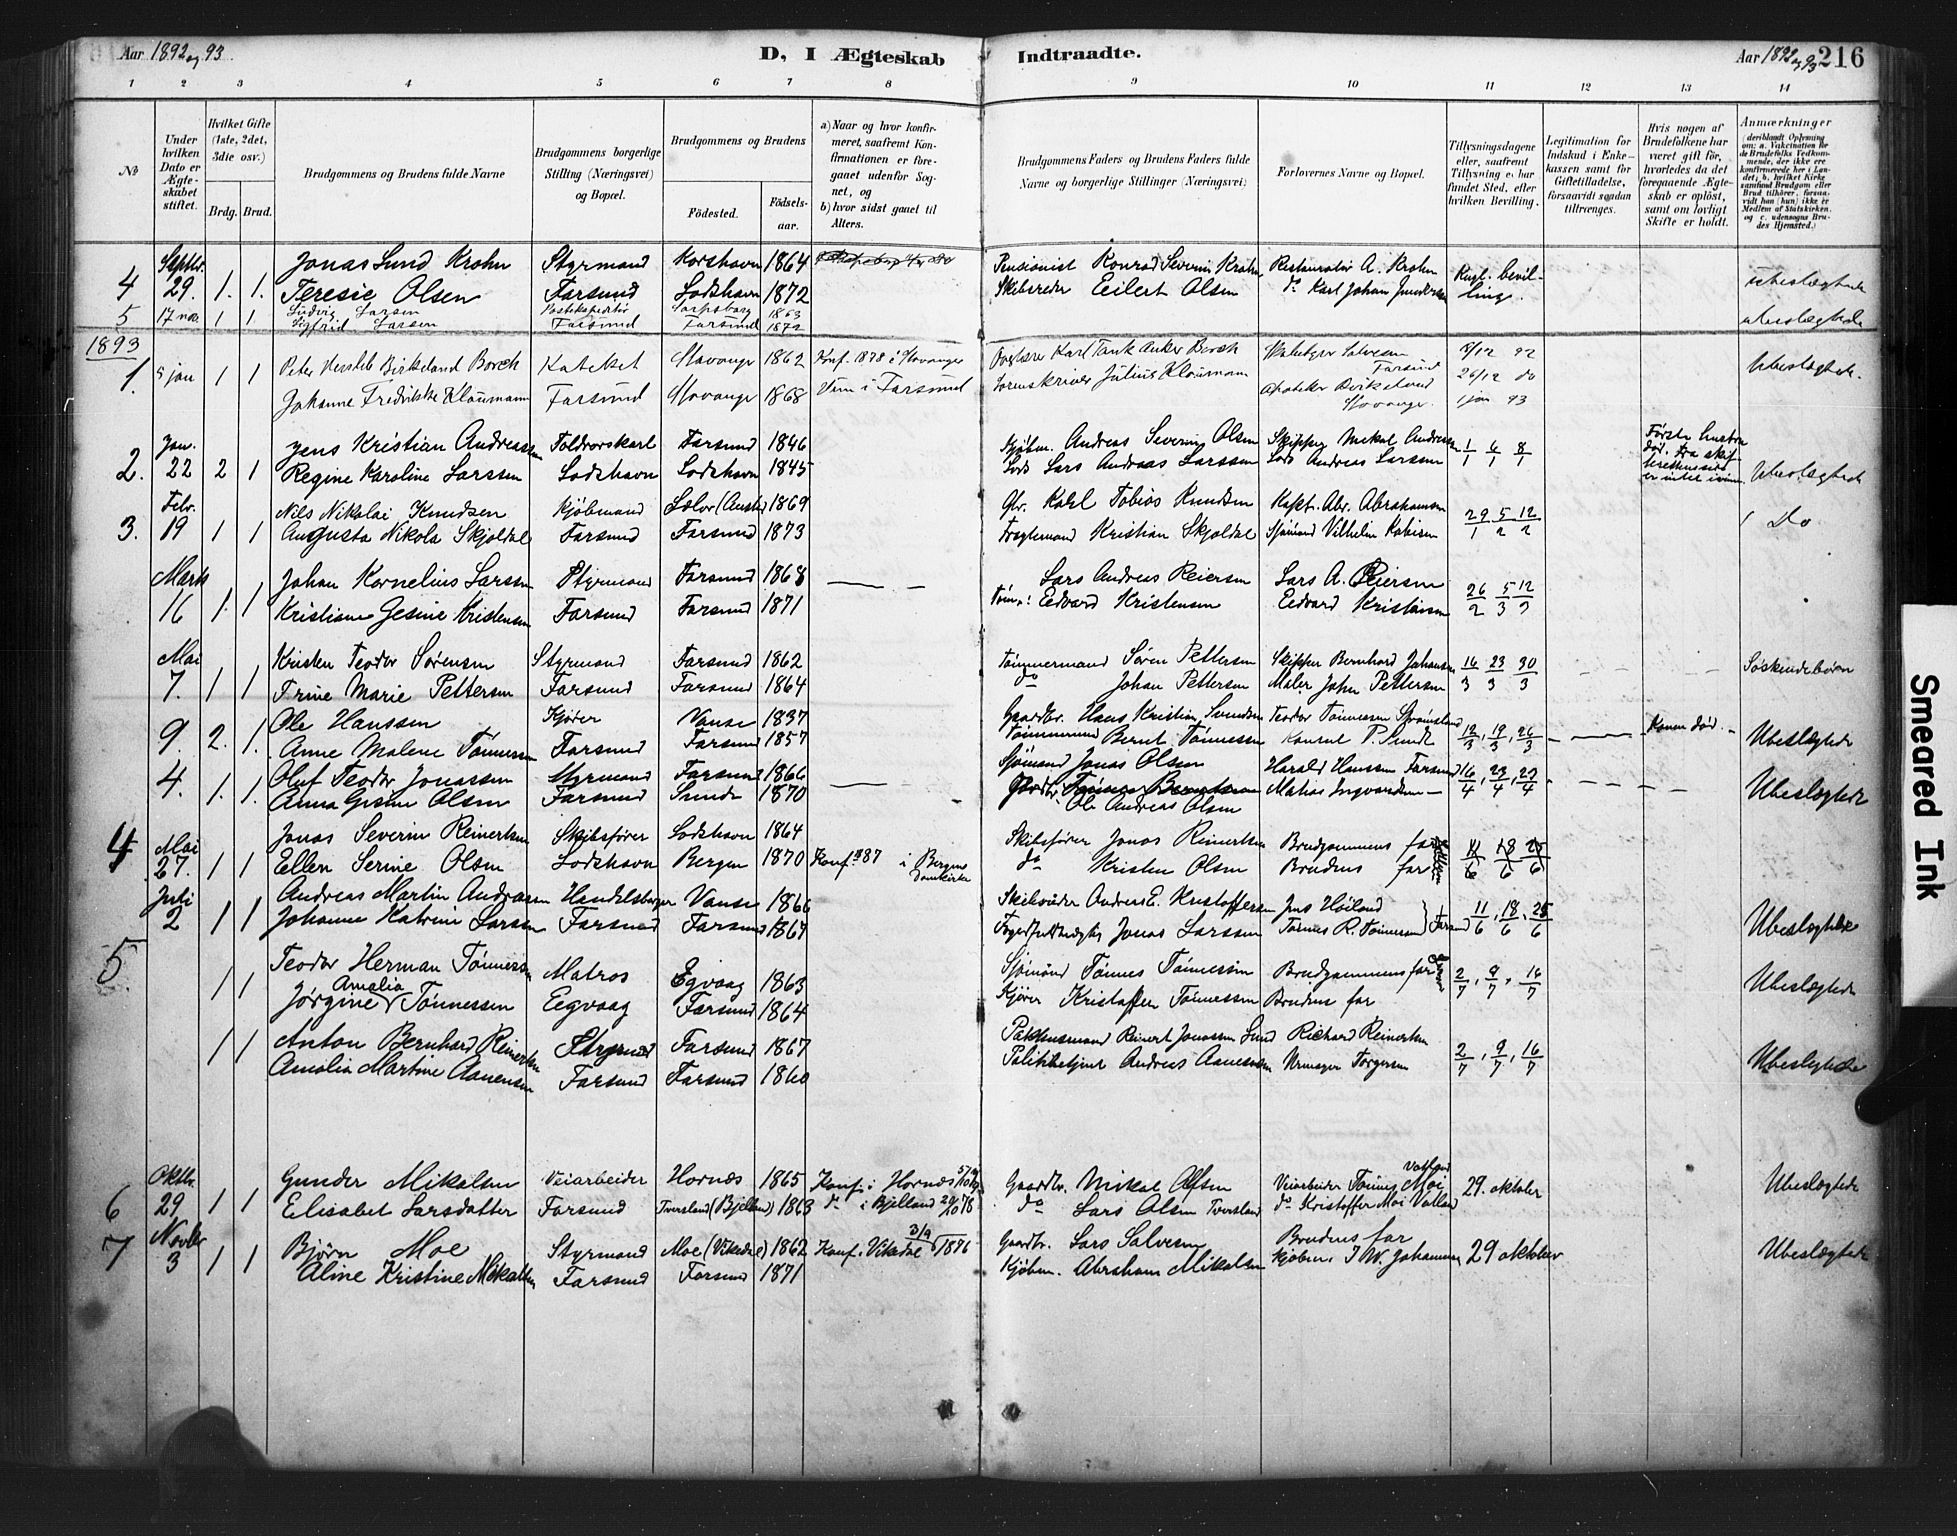 Aar 1892 og 93.
D, I Ægteskab Indtraadte.
Aar 1892 og 93 216
1 2 3 4 5 6 7 8 9 10 11 12 13 14
No
Under hvilken Dato er Ægteskabet stiftet.
Hvilket Gifte (1ste, 2det, 3die osv.)
Brdg. Brud.
Brudgommens og Brudens fulde Navne
Brudgommens borgerlige Stilling (Næringsvei) og Bopæl.
Brudgommens og Brudens
Födested. Födselsaar.
a) Naar og hvor konfirmeret, saafremt Konfirmationen er foregaaet udenfor Sognet, og
b) hvor sidst gaaet til Alters.
Brudgommens Faders og Brudens Faders fulde Navne og borgerlige Stillinger (Næringsvei)
Forlovernes Navne og Bopæl.
Tillysningsdagene eller, saafremt Tillysning ei har fundet Sted, efter hvilken Bevilling.
Legitimation for Indskud i Enkekassen samt for Giftetilladelse, forsaavidt saadan tiltrænges.
Hvis nogen af Brudefolkene har været gift för, hvorledes da det foregaaende Ægteskab er oplöst, samt om lovligt Skifte er holdt.
Anmærkninger (deriblandt Oplysning om: a. Vakcination for de Brudefolks Vedkommende, der ikke ere konfirmerede her i Landet; b. hvilket Kirkesamfund Brudgom eller Brud tilhörer, forsaavidt han (hun) ikke er Medlem af Statskirken, og c. udensogns Brudes Hjemsted.)
4 Septbr. 29. 1. 1. Jonas Lund Krohn Styrmand Korshavn 1864 Pensionist Konrad Severin Krohn Restauratör A. Krohn Kngl. bevilling. ubeslægtede
Teresie Olsen Farsund Lodshavn 1872 Skibsreder Eilert Olsen do Karl Johan
5 17 nov. 1 1 Ludvig Larsen Postekspeditör Sarpsborg 1863 ubeslægtede
Sigfrid Larsen Farsund Farsund 1872
1893
1. 5 jan 1 1 Peter Hersleb Birkeland Borch Kateket Stavanger 1862 Konf. 1878 i Stavanger Karl Tank Anker Borch Salvesen Farsund 8/12 92 Ubeslægtede.
Johanne Fredrikke Klaumann Farsund Stavanger 1868 i Farsund Sorenskriver Julius Klaumann Stavanger. 26/12 do 1 jan 93
2. Jan. 22 2 1 Jens Kristian Andreassen Toldrorskarl Farsund 1846 Kjöbm. Andreas Severin Olsen Skipper Mikal Andreassen 1/1 6/1 8/1 Første hustru död. Ubeslægtede
Regine Karoline Larssen Lodshavn Lodshavn 1845 Lods Lars Andreas Larssen Lods Andreas Larssen
3. Febr. 19 1 1 Nils Nikolai Knudsen Kjöbmand 1869 Gbr. Tobias Knudsen Kapt. Abr. Abrahamsen 29/1 5/2 12/2 Do
Augusta Nikola Skjoldal Farsund Farsund 1873 Kristian Skjoldal Sjömand Vilhelm
Marts 16 1. 1 Johan Kornelius Larssen Styrmand Farsund 1868 Lars Andreas Reiersen Lars A. Reiersen 26/2 5/3 12/3
Kristiane Gesine Kristensen Farsund Farsund 1871 Edvard Kristensen Edvard Kristensen
Mai 7. 1 1 Kristen Teodor Sørensen Styrmand Farsund 1862 Tømmermand Søren Pettersen Skipper Bernhard Johansen 16/3 23/3 30/3 Søskendebørn
Trine Marie Pettersen Farsund Farsund 1864 do Johan Pettersen Maler John Pettersen
9. 2. 1. Ole Hanssen Kjører Vanse 1837 Gaardbr. Hans Kristian Svendsen Teodor Tønnessen 12/3, 19/3, 26/3 Konen död. Ubeslægtede
Anne Malene Tønnessen Farsund Farsund 1857 Tømmermand Bernt Tønnessen Konsul P. Sundt
4. 1. 1. Oluf Teodor Jonassen Styrmand Farsund 1866 Sjömand Jonas Olsen Harald Hanssen Farsund 16/4, 23/4, 23/4 Ubeslægtede
Anna Gesine Olsen Farsund Sunde 1870 Ole Andreas Olsen Matias Ingvardsen
4 Mai 27. 1 1 Jonas Severin Reinertsen Skibsfører Lodshavn 1864 Skibsfører Jonas Reinertsen Brudgommens far 11/6 18/6 25/6
Ellen Serine Olsen Lodshavn Bergen 1870 Konf. 87 i Bergens Domkirke do Kristen Olsen Brudens far
Juli 2 1 1 Andreas Martin Andreassen Handelsborger Vanse 1866 Andreas E. Kristoffersen Jens Høiland Farsund 11/6, 18/6, 25/6 Ubeslægtede
Johanne Katrine Larssen Farsund Farsund 1867 Fogedfuldmægtig Jonas Larssen Tønnes R. Tønnessen
5 1 1 Teodor Herman Tønnessen Matros Egvaag 1863 Sjömand Tønnes Tønnessen Brudgommens far 2/7, 9/7, 16/7 Ubeslægtede
Jørgine Amalia Tønnessen Eegvaag Farsund 1864 Kjører Kristoffer Tønnessen Brudens far
1 1 Anton Bernhard Reinertsen Styrmand Farsund 1867 Pakhusmand Reinert Jonassen Lund Richard Reinertsen 2/7, 9/7, 16/7 Ubeslægtede
Amalia Martine Aanensen Farsund Farsund 1860 Politibetjent Andreas Aanensen Urmager Torgersen
6 Oktbr. 29 1 1 Gunder Mikalsen Veiarbeider Hornæs 1865 Konf. i Hornæs Gaardbr. Mikal Olsen Veiarbeider Tønnes Moi Vatland 29. oktober Ubeslægtede
Elisabet Larsdatter Farsund Tversland (Bjelland) 1863 do i Bjelland 20/10 78 do Lars Olsen Tversland do Kristoffer Moi Vatland
7 Novbr 3 1 1 Bjørn Moe Styrmand Moe (Vikedal) 1862 Konf. i Vikedal 3/9 1876 Gaardbr. Lars Salvesen Brudens far 29 oktober Ubeslægtede
Aline Kristine Mikalsen Farsund Farsund 1871 Kjöbm. Abraham Mikalsen Kjöbm. J. W. Johannesen
Smeared Ink